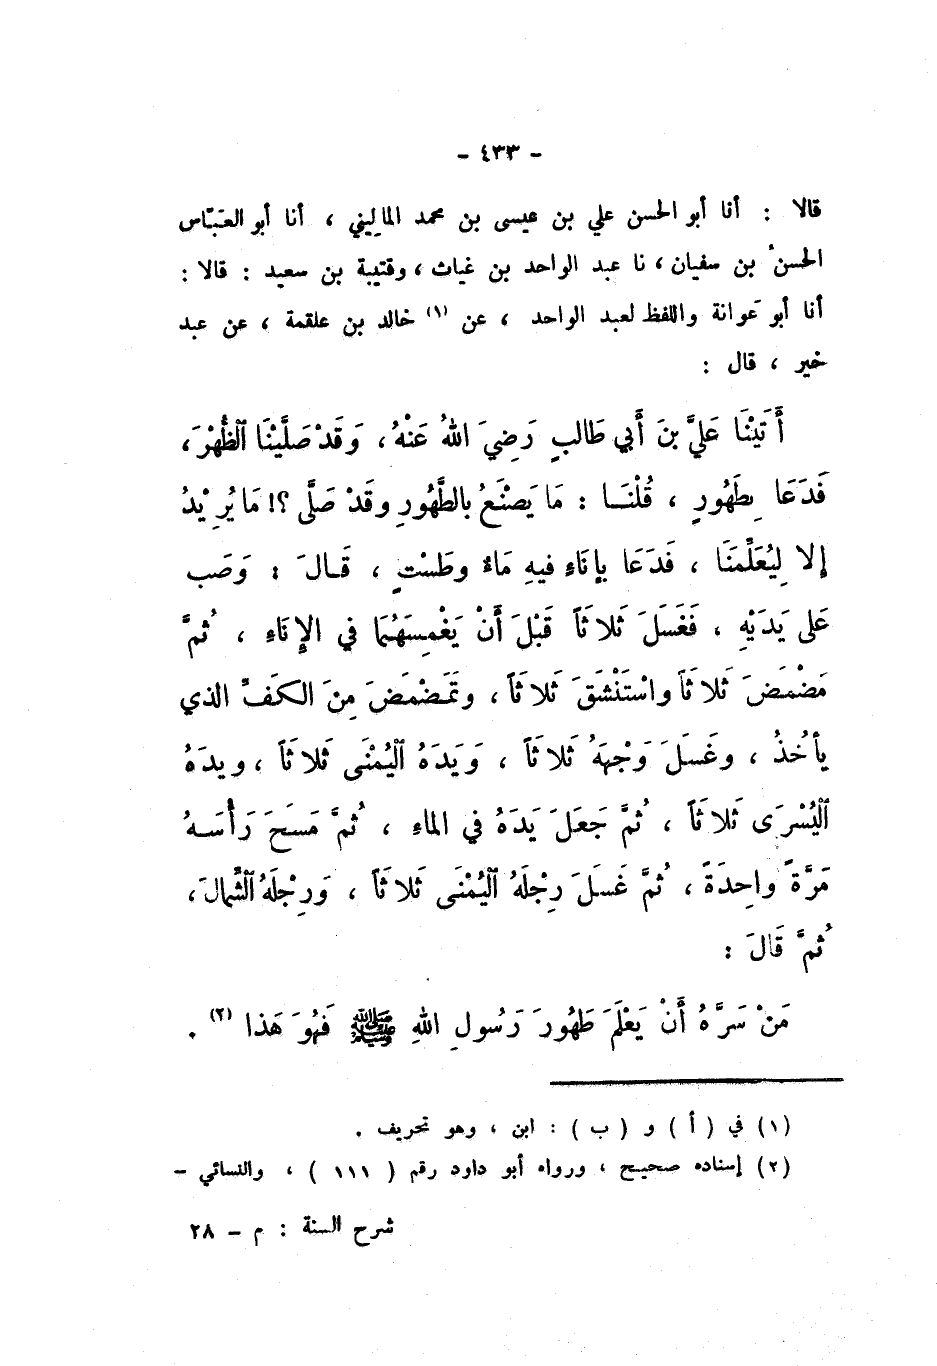 - ٤٣٣ -
قالا : أنا أبو الحسن علي بن عيسى بن محمد الماليني ، أنا أبو العبّاس
الحسنُ بن سفيان ، نا عبد الواحد بن غياث ، وقتيبة بن سعيد : قالا :
أنا أبو عَوانة واللفظ لعبد الواحد ، عن (١) خالد بن علقمة ، عن عبد
خير ، قال :
أَتَيْنَا عَلِيَّ بنَ أَبي طَالبٍ رَضِيَ اللهُ عَنْهُ ، وَقَدْ صَلَّيْنَا ٱلظُّهْرَ ،
فَدَعَا بِطَهُورٍ ، قُلْنَا : مَا يَصْنَعُ بالطَّهُورِ وقَدْ صَلَّى ؟! مَا يُرِيْدُ
إلا لِيُعَلِّمَنَا ، فَدَعَا بإنَاءٍ فيهِ مَاءٌ وطَسْتٍ ، قَالَ : وَصَب
عَلى يَدَيْهِ ، فَغَسَلَ ثَلاثَاً قَبْلَ أَنْ يَغْمِسَهُمَا في الإنَاءِ ، ثُمَّ
مَضْمَضَ ثَلاثَاً واسْتَنْشَقَ ثَلاثَاً ، وتَمَضْمَضَ مِنَ الكَفِّ الذي
يأخُذُ ، وغَسَلَ وَجْهَهُ ثَلاثَاً ، وَيَدَهُ ٱليُمْنَى ثَلاثَاً ، ويدَهُ
ٱليُسْرَى ثَلاثَاً ، ثُمَّ جَعَلَ يَدَهُ في الماءِ ، ثُمَّ مَسَحَ رَأْسَهُ
مَرَّةً واحِدَةً ، ثُمَّ غَسَلَ رِجْلَهُ ٱليُمْنَى ثَلاثَاً ، وَرِجْلَهُ ٱلشِّمالَ ،
ثُمَّ قَالَ :
مَنْ سَرَّهُ أَنْ يَعْلَمَ طَهُورَ رَسُولِ اللهِ ﷺ فَهُوَ هَذا (٢) .
(١) في ( أ ) و ( ب ) : ابن ، وهو تحريف .
(٢) إسناده صحيح ، ورواه أبو داود رقم ( ١١١ ) ، والنسائي -
شرح السنة : م - ٢٨